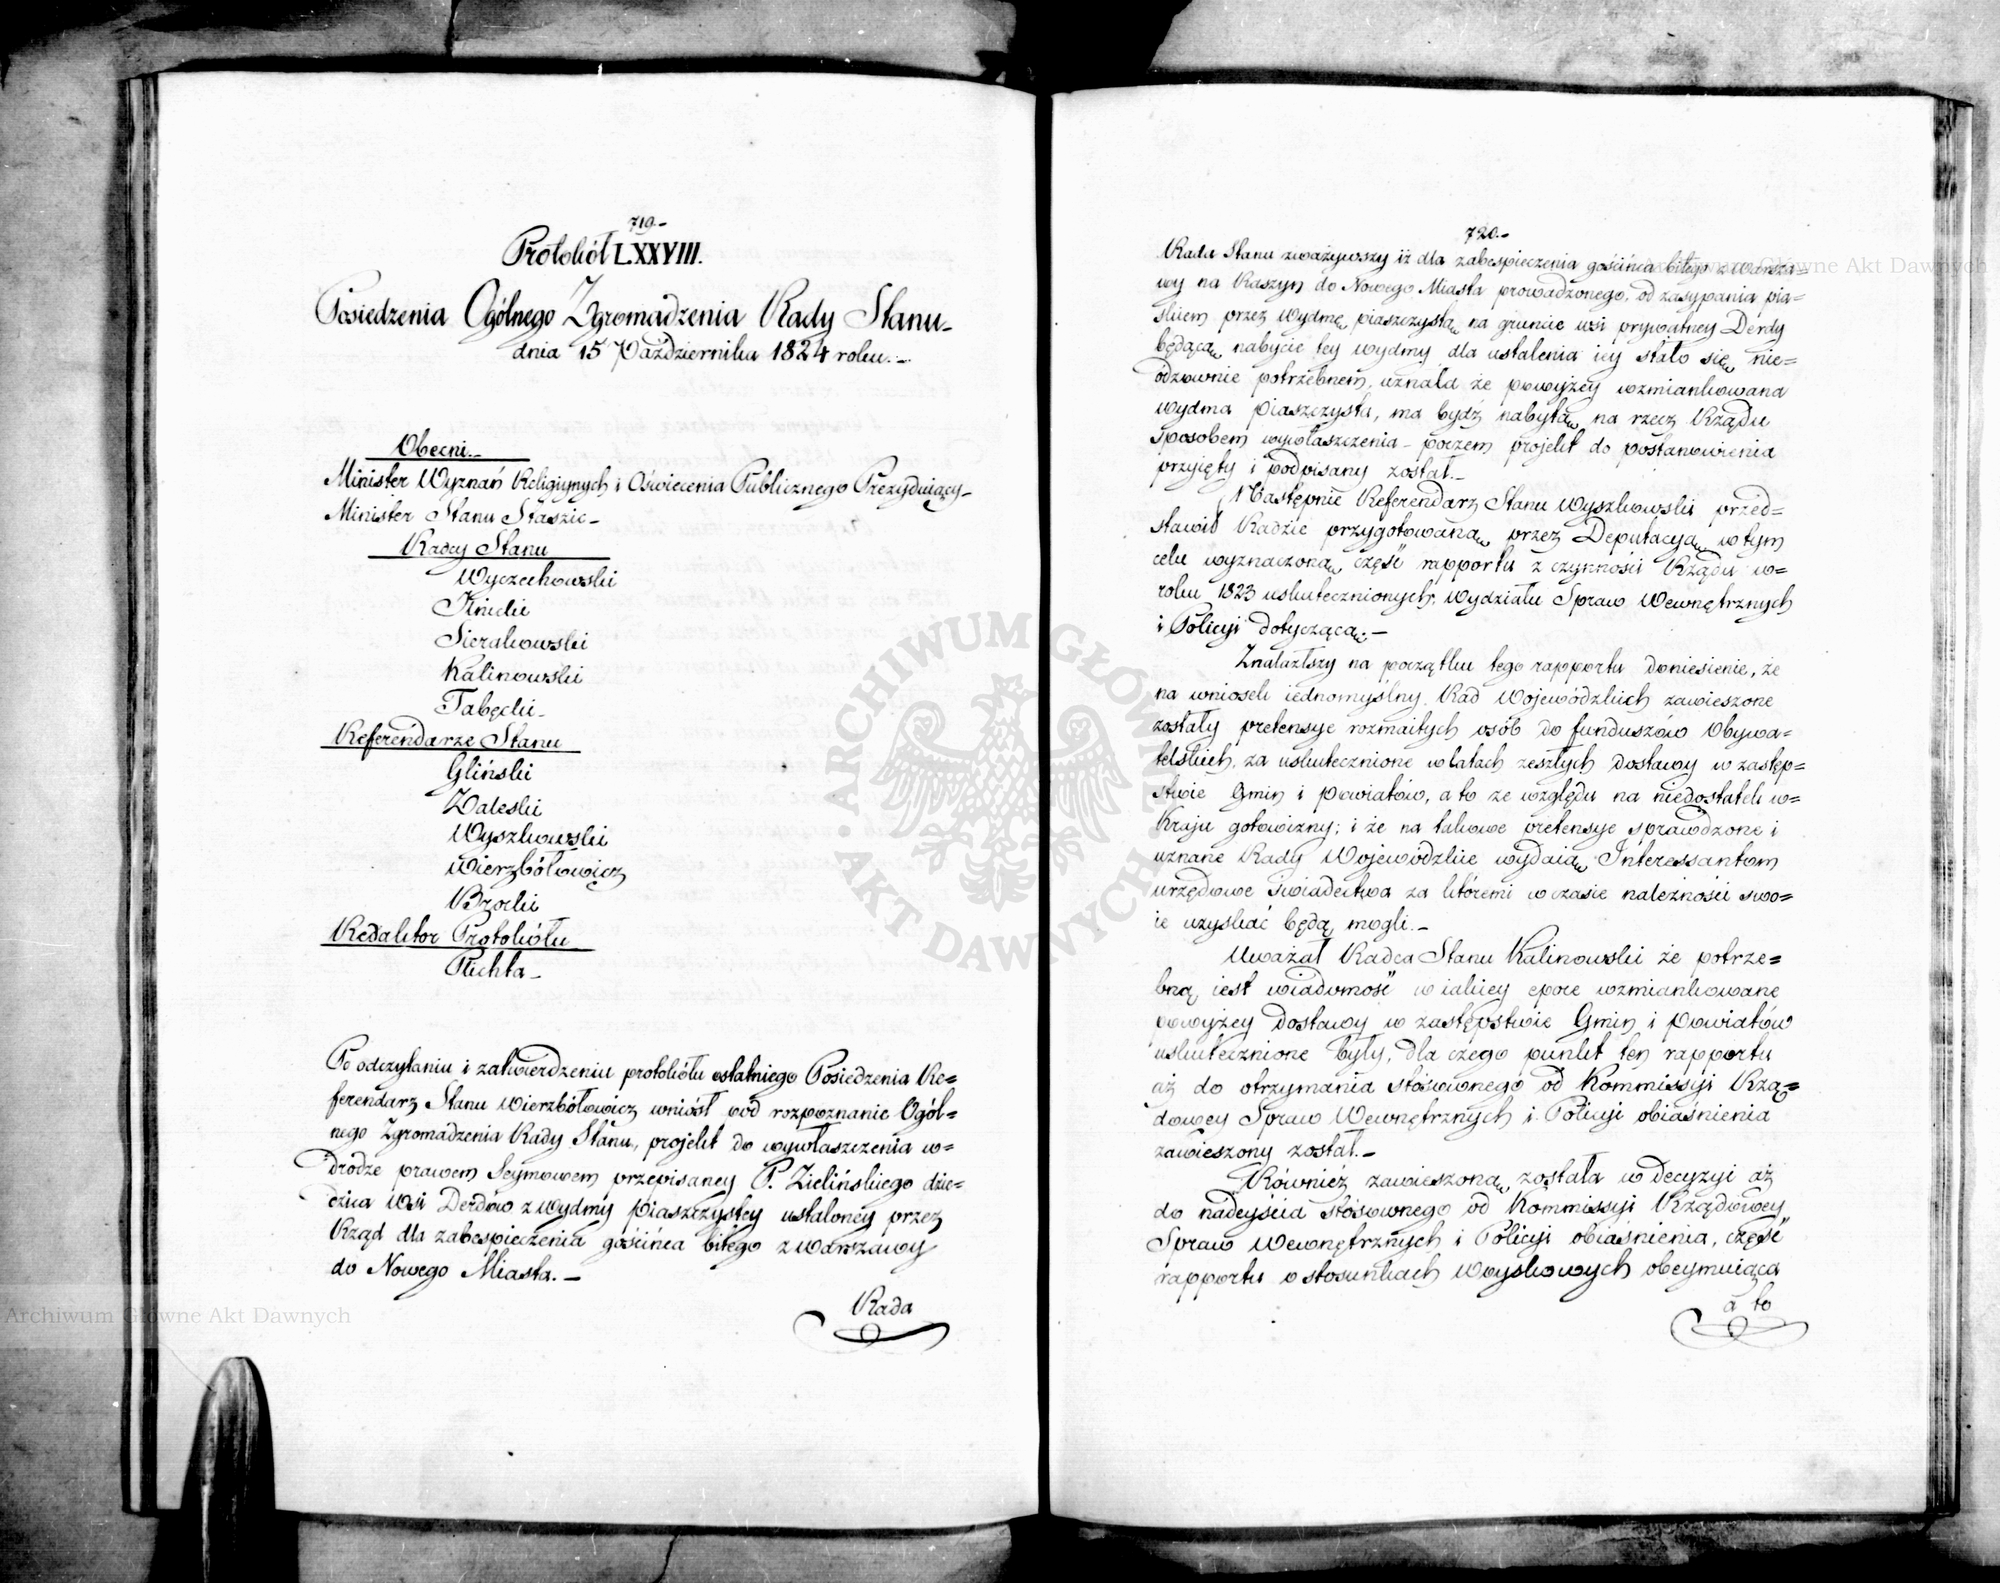 719.-
Protokół LXXVIII.
Posiedzenia Ogólnego Zgromadzenia Rady Stanu_
dnia 15 Października 1824 roku.-
Obecni._
Minister Wyznań Religiynych i Oświecenia Publicznego Prezyduiący_
Minister Stanu Staszic_
Radcy Stanu
Wyczechowski
Knichi
Sierakowski
Kalinowski
Tabęcki_
Referendarze Stanu
Gliński
Zaleski
Wyszkowski
Wierzbółowicz
Brocki
Redaktor Protokółu
Plichta_
Po odczytaniu i zatwierdzeniu protokółu ostatniego Posiedzenia Re=
ferendarz Stanu Wierzbółowicz wniósł pod rozpoznanie Ogól=
nego Zgromadzenia Rady Stanu, projekt do wywłaszczenia w=
drodze prawem Seymowem przepisaney P. Zielińskiego dzie=
dzica Wsi Derdów z wydmy piaszczystey ustaloney przez
Rząd dla zabespieczenia gościńca bitego z Warszawy
do Nowego Miasta._
Rada
720.-
Rada Stanu zważywszy iż dla zabespieczenia gościńca bitego z Warsza=
wy na Raszyn do Nowego Miasta prowadzonego, od zasypania pia=
skiem przez wydmę piaszczystą na gruncie wsi prywatney Derdy
będącą, nabycie tey wydmy dla ustalenia iey stało się nie=
odzownie potrzebnem, uznała że powyżey wzmiankowana
wydma piaszczysta, ma bydź nabytą na rzecz Rządu
sposobem wywłaszczenia - poczem projekt do postanowienia
przyięty i podpisany został._
Następnie Referendarz Stanu Wyszkowski przed=
stawił Radzie przygotowaną przez Deputacyą w tym
celu wyznaczoną część rapportu z czynności Rządu w=
roku 1823 uskutecznionych, Wydziału Spraw Wewnętrznych
i Policyi dotyczącą._
Znalazłszy na początku tego rapportu doniesienie, że
na wniosek iednomyślny Rad Wojewódzkich zawieszone
zostały pretensye rozmaitych osób do funduszów Obywa=
telskich, za uskutecznione w latach zeszłych dostawy w zastęp=
stwie Gmin i powiatów, a to ze względu na niedostatek w=
Kraju gotowizny; i że na takowe pretensye sprawdzone i
uznane Rady Wojewódzkie wydaią Interessantom
urzędowe świadectwa za któremi w czasie należności swo=
ie uzyskać będą mogli._
Uważał Radca Stanu Kalinowski że potrze=
bną iest wiadomość w iakiey epoce wzmiankowane
powyżey dostawy w zastępstwie Gmin i powiatów
uskutecznione były, dla czego punkt ten rapportu
aż do otrzymania stósownego od Kommissyi Rzą=
dowey Spraw Wewnętrznych i Policyi obiaśnienia
zawieszony został._
Również zawieszoną została w decyzyi aż
do nadeyścia stósownego od Kommissyi Rządowey
Spraw Wewnętrznych i Policyi obiaśnienia, część
rapportu o stosunkach Woyskowych obeymuiąca
a to
Archiwum Główne Akt Dawnych
Archiwum Główne Akt Dawnych
ARCHIWUM GŁÓWNE AKT DAWNYCH